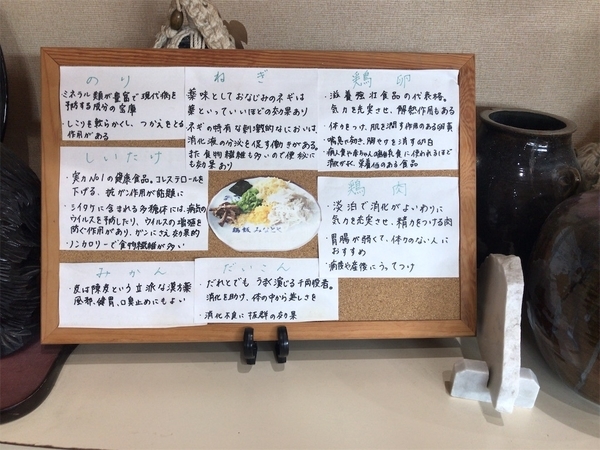 のり
ミネラル類が豊富で現代病を
予防する成分の宝庫
・しこりを軟らかくし、つかえをとる
作用がある
ねぎ
薬味としておなじみのネギは
薬といっていいほどの効果あり
ネギの特有な刺激的なにおいは、
消化液の分泌を促す働きがある。
また食物繊維も多いので便秘に
も効果あり
鶏卵
・滋養強壮食品の代表格。
気力を充実させ、解熱作用もある
・体力をつけ、肌を潤す作用のある卵黄
・喘息や
を消す卵白
・病人食や赤ちゃんの離乳食に使われるほど
消化がよく、栄養価のある食品
しいたけ
・実力No.1の健康食品。コレステロールを
下げる、抗ガン作用が話題に
・シイタケに含まれる多糖体には、病気の
ウイルスを予防したり、ウイルスの増殖を
防ぐ作用があり、ガンにさえ効果的
・ノンカロリーで食物繊維が多い
鶏飯 みなとや
鶏肉
・淡泊で消化がよいわりに
気力を充実させ、精力をつける肉
・胃腸が弱くて、体力のない人に
おすすめ
・病後や産後にうってつけ
みかん
・皮は陳皮という立派な漢方薬
風邪、健胃、口臭止めにもよい
だいこん
・だれとでもうまく演じる千両役者。
消化を助け、体の中から美しさを
・消化不良に抜群の効果